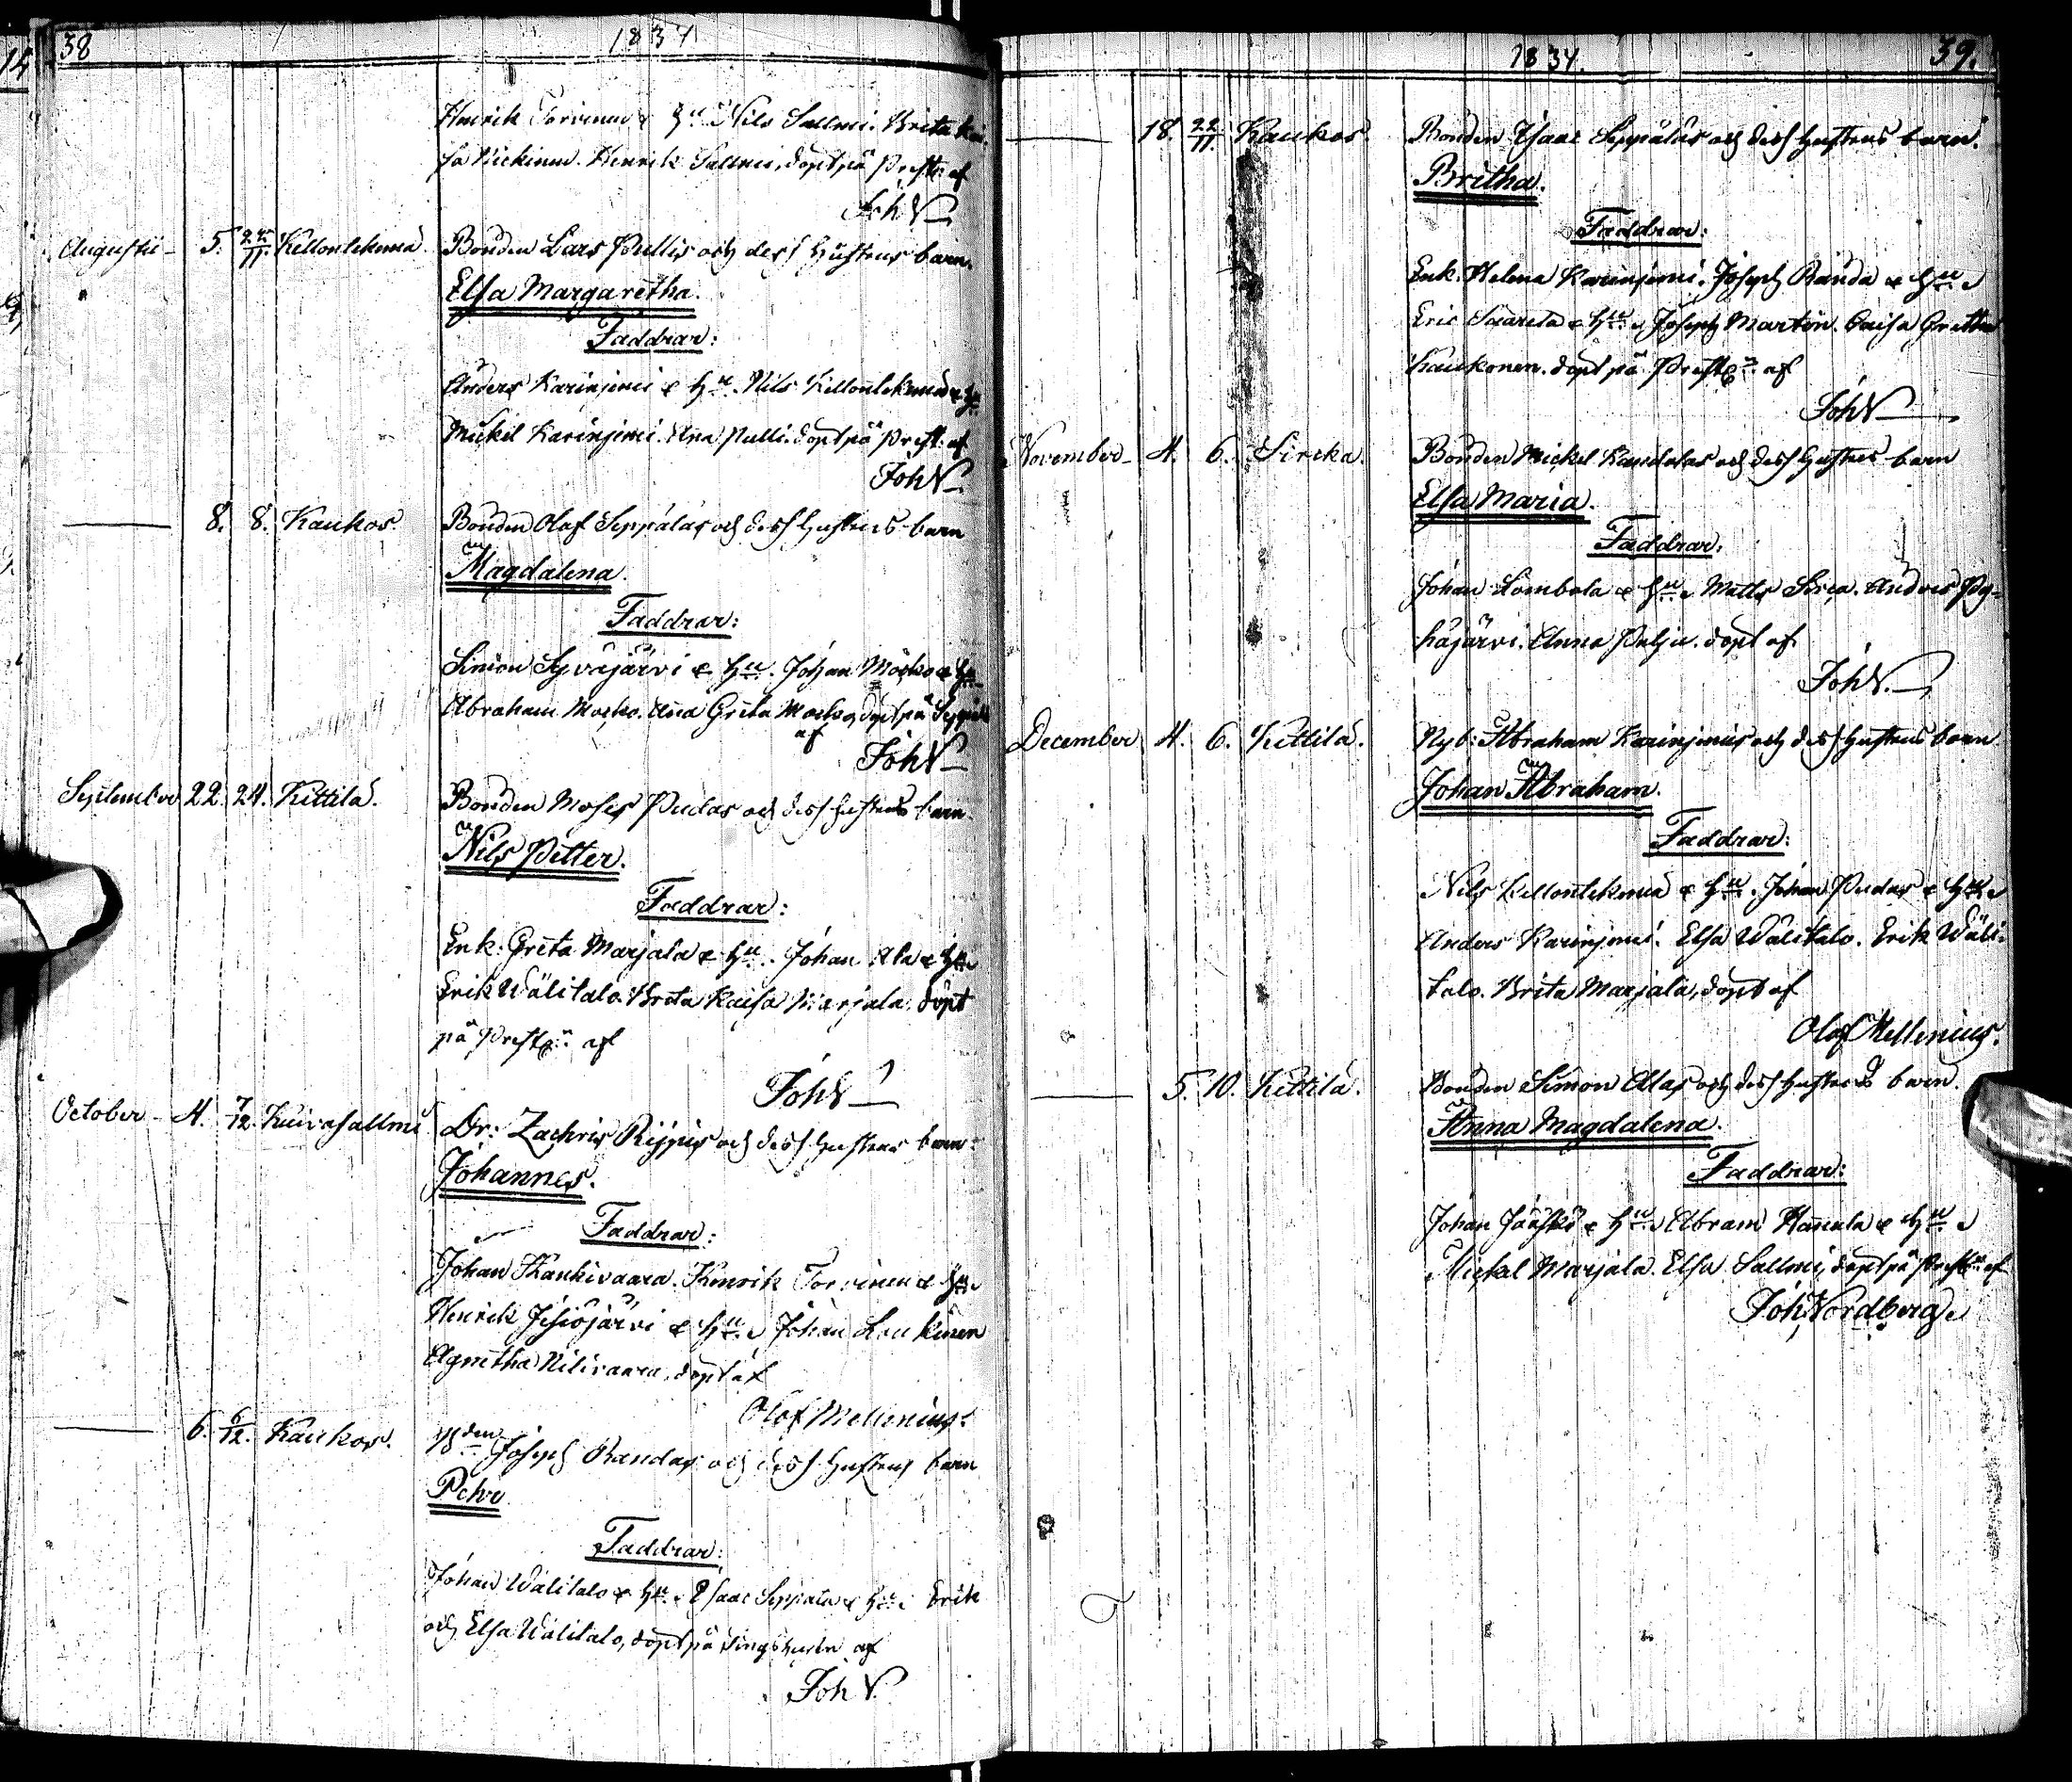 38
1834
Henrik Torvinen & H:u Nils Sallmi. Brita Kai-
sa Henrik Sallmi, döpt på Prest: af
Joh N
Augustii 5. 22/11. Kellontekemä. Bonden Lars Pullis och dess Hustrus barn.
Elsa Margaretha.
Faddrar:
Anders Karinjemi & H:u. Nils Kellontekemä & H:u
Mickel Karinjemi. Ana Pulli. döpt på Prest: af
Joh N
8. 8. Kaukos. Bonden Olof Seppälas och dess Hustrus barn
Magdalena.
Faddrar:
Simon Syväjärvi & H:u. Johan Mosko & H:u
Abraham Mosko. Ana Greta Mosko, döpt på
af
Joh N
September 22. 24. Kittilä. Bonden Moses Pudas och dess Hustrus barn.
Nils Petter.
Faddrar:
Enk: Greta Marjala & H:u. Johan Ala & H:u
Erik Wälitalo. Brita Kaisa Marjala, döpt
på Prestg:n af
Joh N
October 4. 7/12. Kuivasallmi Dr: Zachris Rijpis och dess Hustrus barn:
Johannes.
Faddrar:
Johan Kaukivaara. Henrik Torvinen & H:u
Henrik Jesiojärvi & H:u Johan Laukinen
Agnetha Nilivaara, döpt af
Olof Mellenius.
6. 6/12. Kaukos. B:den Joseph Randas och dess Hustrus barn
Pehr
Faddrar:
Johan Wälitalo & H:u. Isaac Seppälä & H:u Erik
och Elsa Wälitalo, döpt på Tingshuset af
Joh N.
1834.
39.
18. 22/11 Kaukos. Bonden Isaac Seppälas och dess Hustrus barn.
Britha.
Faddrar:
Enk. Helena Karinjemi. Joseph Randa & H:u
Eric & H:u Joseph Martin. Caisa Gretha
Kaukonen. döpt på Prestg:n af
Joh N
November 4. 6. Sircka. Bonden Mickel Kandelas och dess Hustrus barn
Elsa Maria.
Faddrar:
Johan Lombola & H:u Matts Sirca. Anders Py-
häjärvi. Anna Palju. döpt af
Joh N.
December 4. 6. Kittilä. Nyb: Abraham Karinjemis och dess Hustrus barn
Johan Abraham.
Faddrar:
Nils Kellontekemä & H:u. Johan Pudas & H:u
Anders Karinjemi. Elsa Wälitalo. Erik Wäli-
talo. Brita Marjala, döpt af
Olof Mellenius.
5. 10. Kittilä. Bonden Simon Alas och dess Hustrus barn.
Anna Magdalena.
Faddrar:
Johan Jääskö & H:u Abram Hannula & H:u
Mickel Marjala. Elsa Sallmi, döpt på Prestg:n af
Joh Nordberg